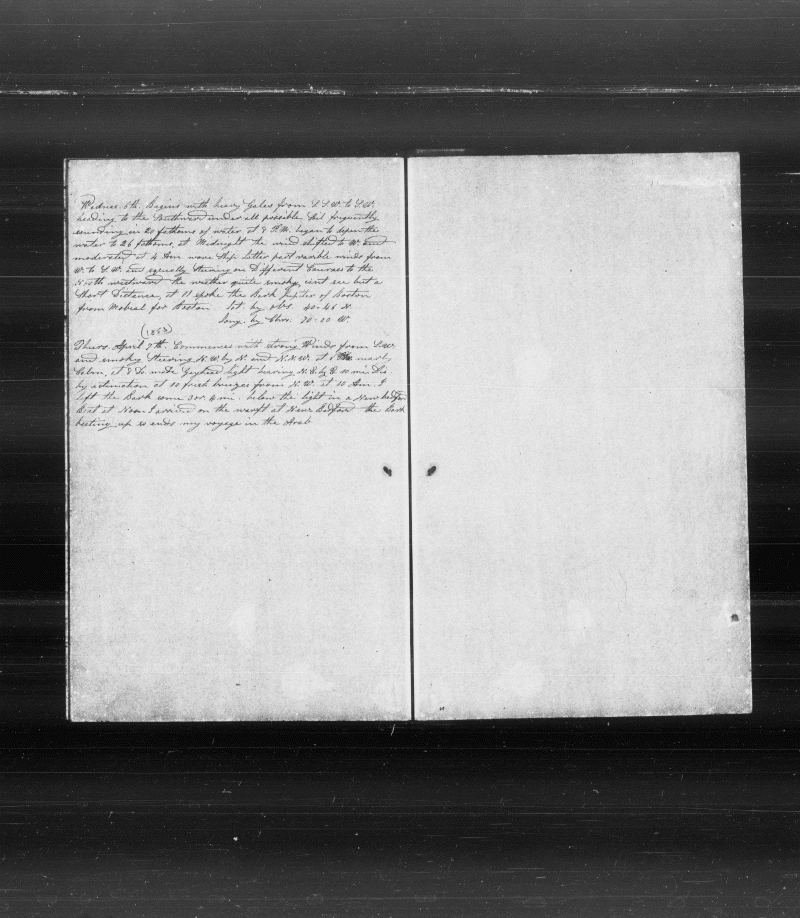 Wednes. 6th. Begins with heavy Gales from S.S.W. to S.W.
heading to the Northward under all possible Sail frequently
sounding in 20 fathoms of water at 8 P.M. began to depen the
water to 26 fathoms, at Midnight the wind shifted to W. and
moderated at 4 Am wore Ship Latter part varible winds from
W. to S.W. and squally Steering on Different Courses to the
North westward the weather quite smoky, cant see but a
Short Distance, at 11 spoke the Bark Jupiter of Boston
from Mobeal for Boston Lat. by obs. 40-46 N.
Long. by Chro. 70-20 W.
(1853)
Thurs. April 7th. Commences with strong Winds from S.W.
and smoky Steering N.W. by N. and N.N.W. at 6 nearly
Calm, at 8 made Gayhead light bearing N.E. by E. 10 mi. Dis
by estimation at 10 fresh breezes from N.W. at 10 Am. I
left the Bark some 3 or 4 mi. below the light in a New bedford
Boat at Noon I arrived on the warft at New Bedford the Bark
beeting up so ends my voyage in the Arab